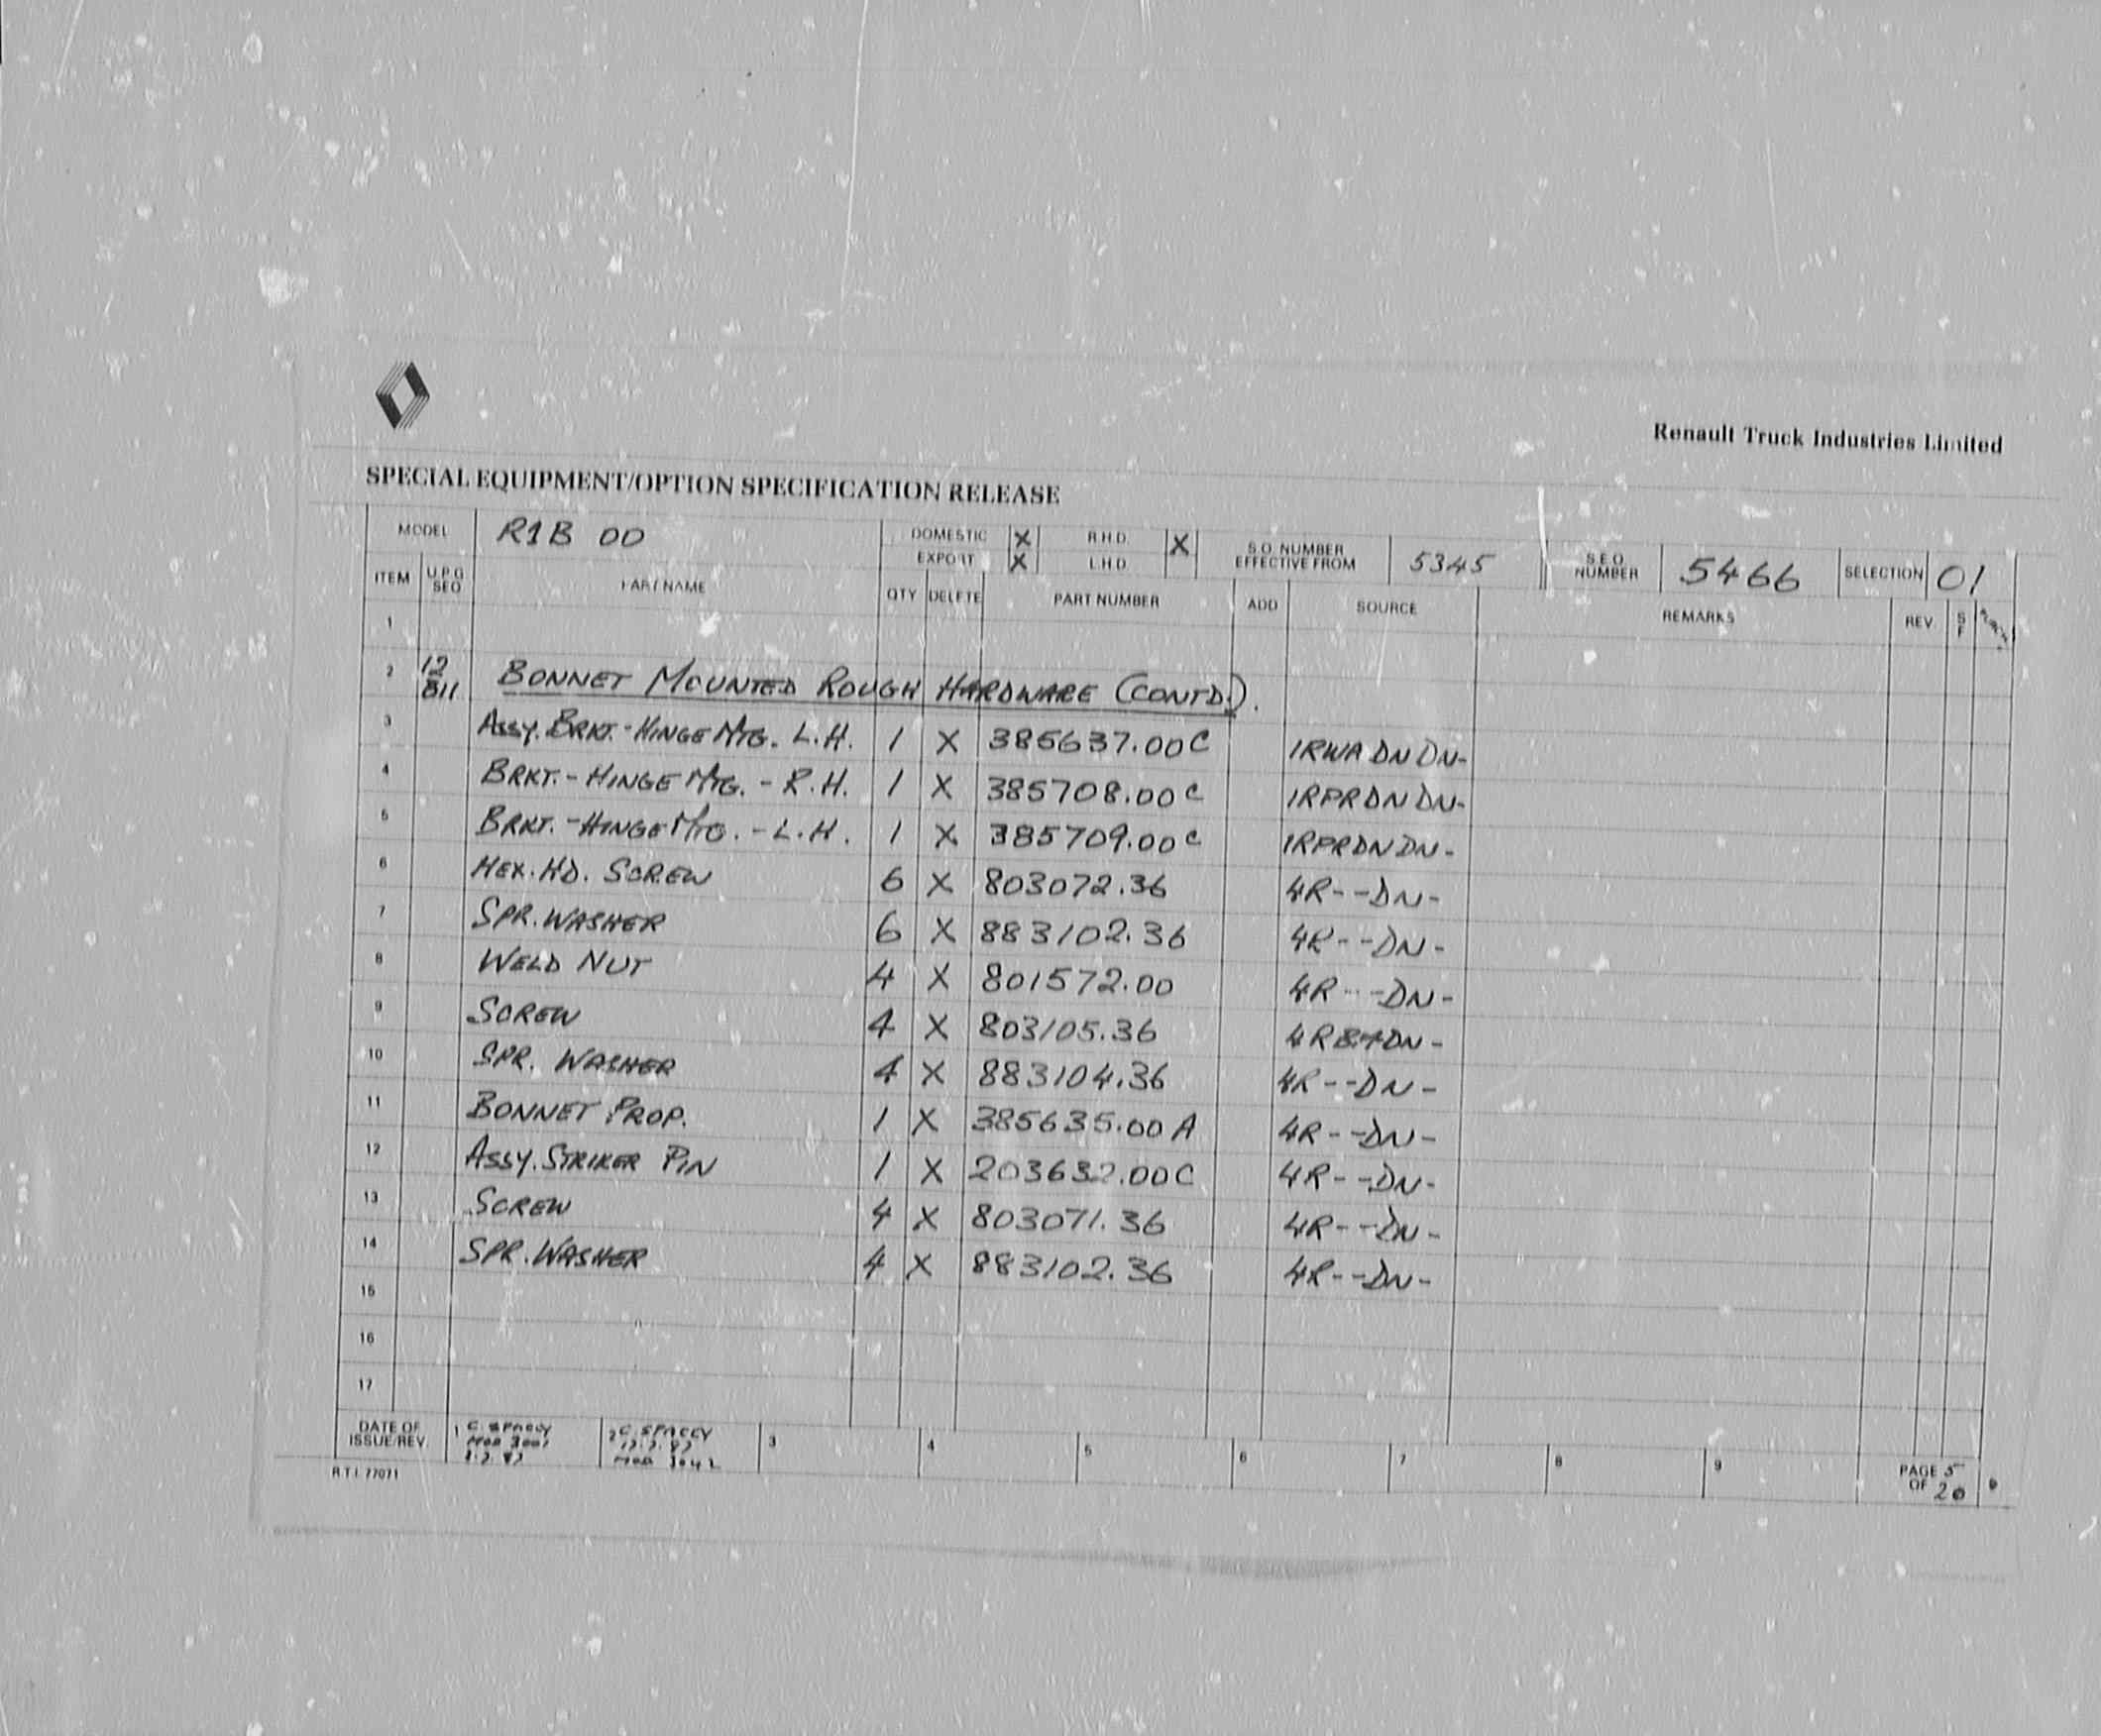 Renault Truck Industries Limited
SPECIAL EQUIPMENT/OPTION SPECIFICATION RELEASE
MODEL R1B 00 DOMESTIC X R.H.D. X S.O. NUMBER EFFECTIVE FROM 5345 S.E.O. NUMBER 5466 SELECTION 01
EXPORT X L.H.D.
ITEM U.P.G SEQ PART NAME QTY DELETE PART NUMBER ADD SOURCE REMARKS REV. S F
1
2 12/811 BONNET MOUNTED ROUGH HARDWARE (CONTD.).
3 ASSY. BRKT.-HINGE MTG. L.H. 1 X 385637.00C 1RWA DN DN-
4 BRKT.-HINGE MTG.-R.H. 1 X 385708.00C 1RPRDN DN-
5 BRKT.-HINGE MTG.-L.H. 1 X 385709.00C 1RPRDN DN-
6 HEX.HD. SCREW 6 X 803072.36 4R--DN-
7 SPR.WASHER 6 X 883102.36 4R--DN-
8 WELD NUT 4 X 801572.00 4R--DN-
9 SCREW 4 X 803105.36
10 SPR. WASHER 4 X 883104.36 4R--DN-
11 BONNET PROP. 1 X 385635.00A 4R--DN-
12 ASSY.STRIKER PIN 1 X 203632.00C 4R--DN-
13 SCREW 4 X 803071.36 4R--DN-
14 SPR.WASHER 4 X 883102.36 4R--DN-
15
16
17
DATE OF ISSUE/REV. 1 C. SPACCY 2 C. SPACCY 3 4 5 6 7 8 9 PAGE 5 OF 20
R.T.I. 77071